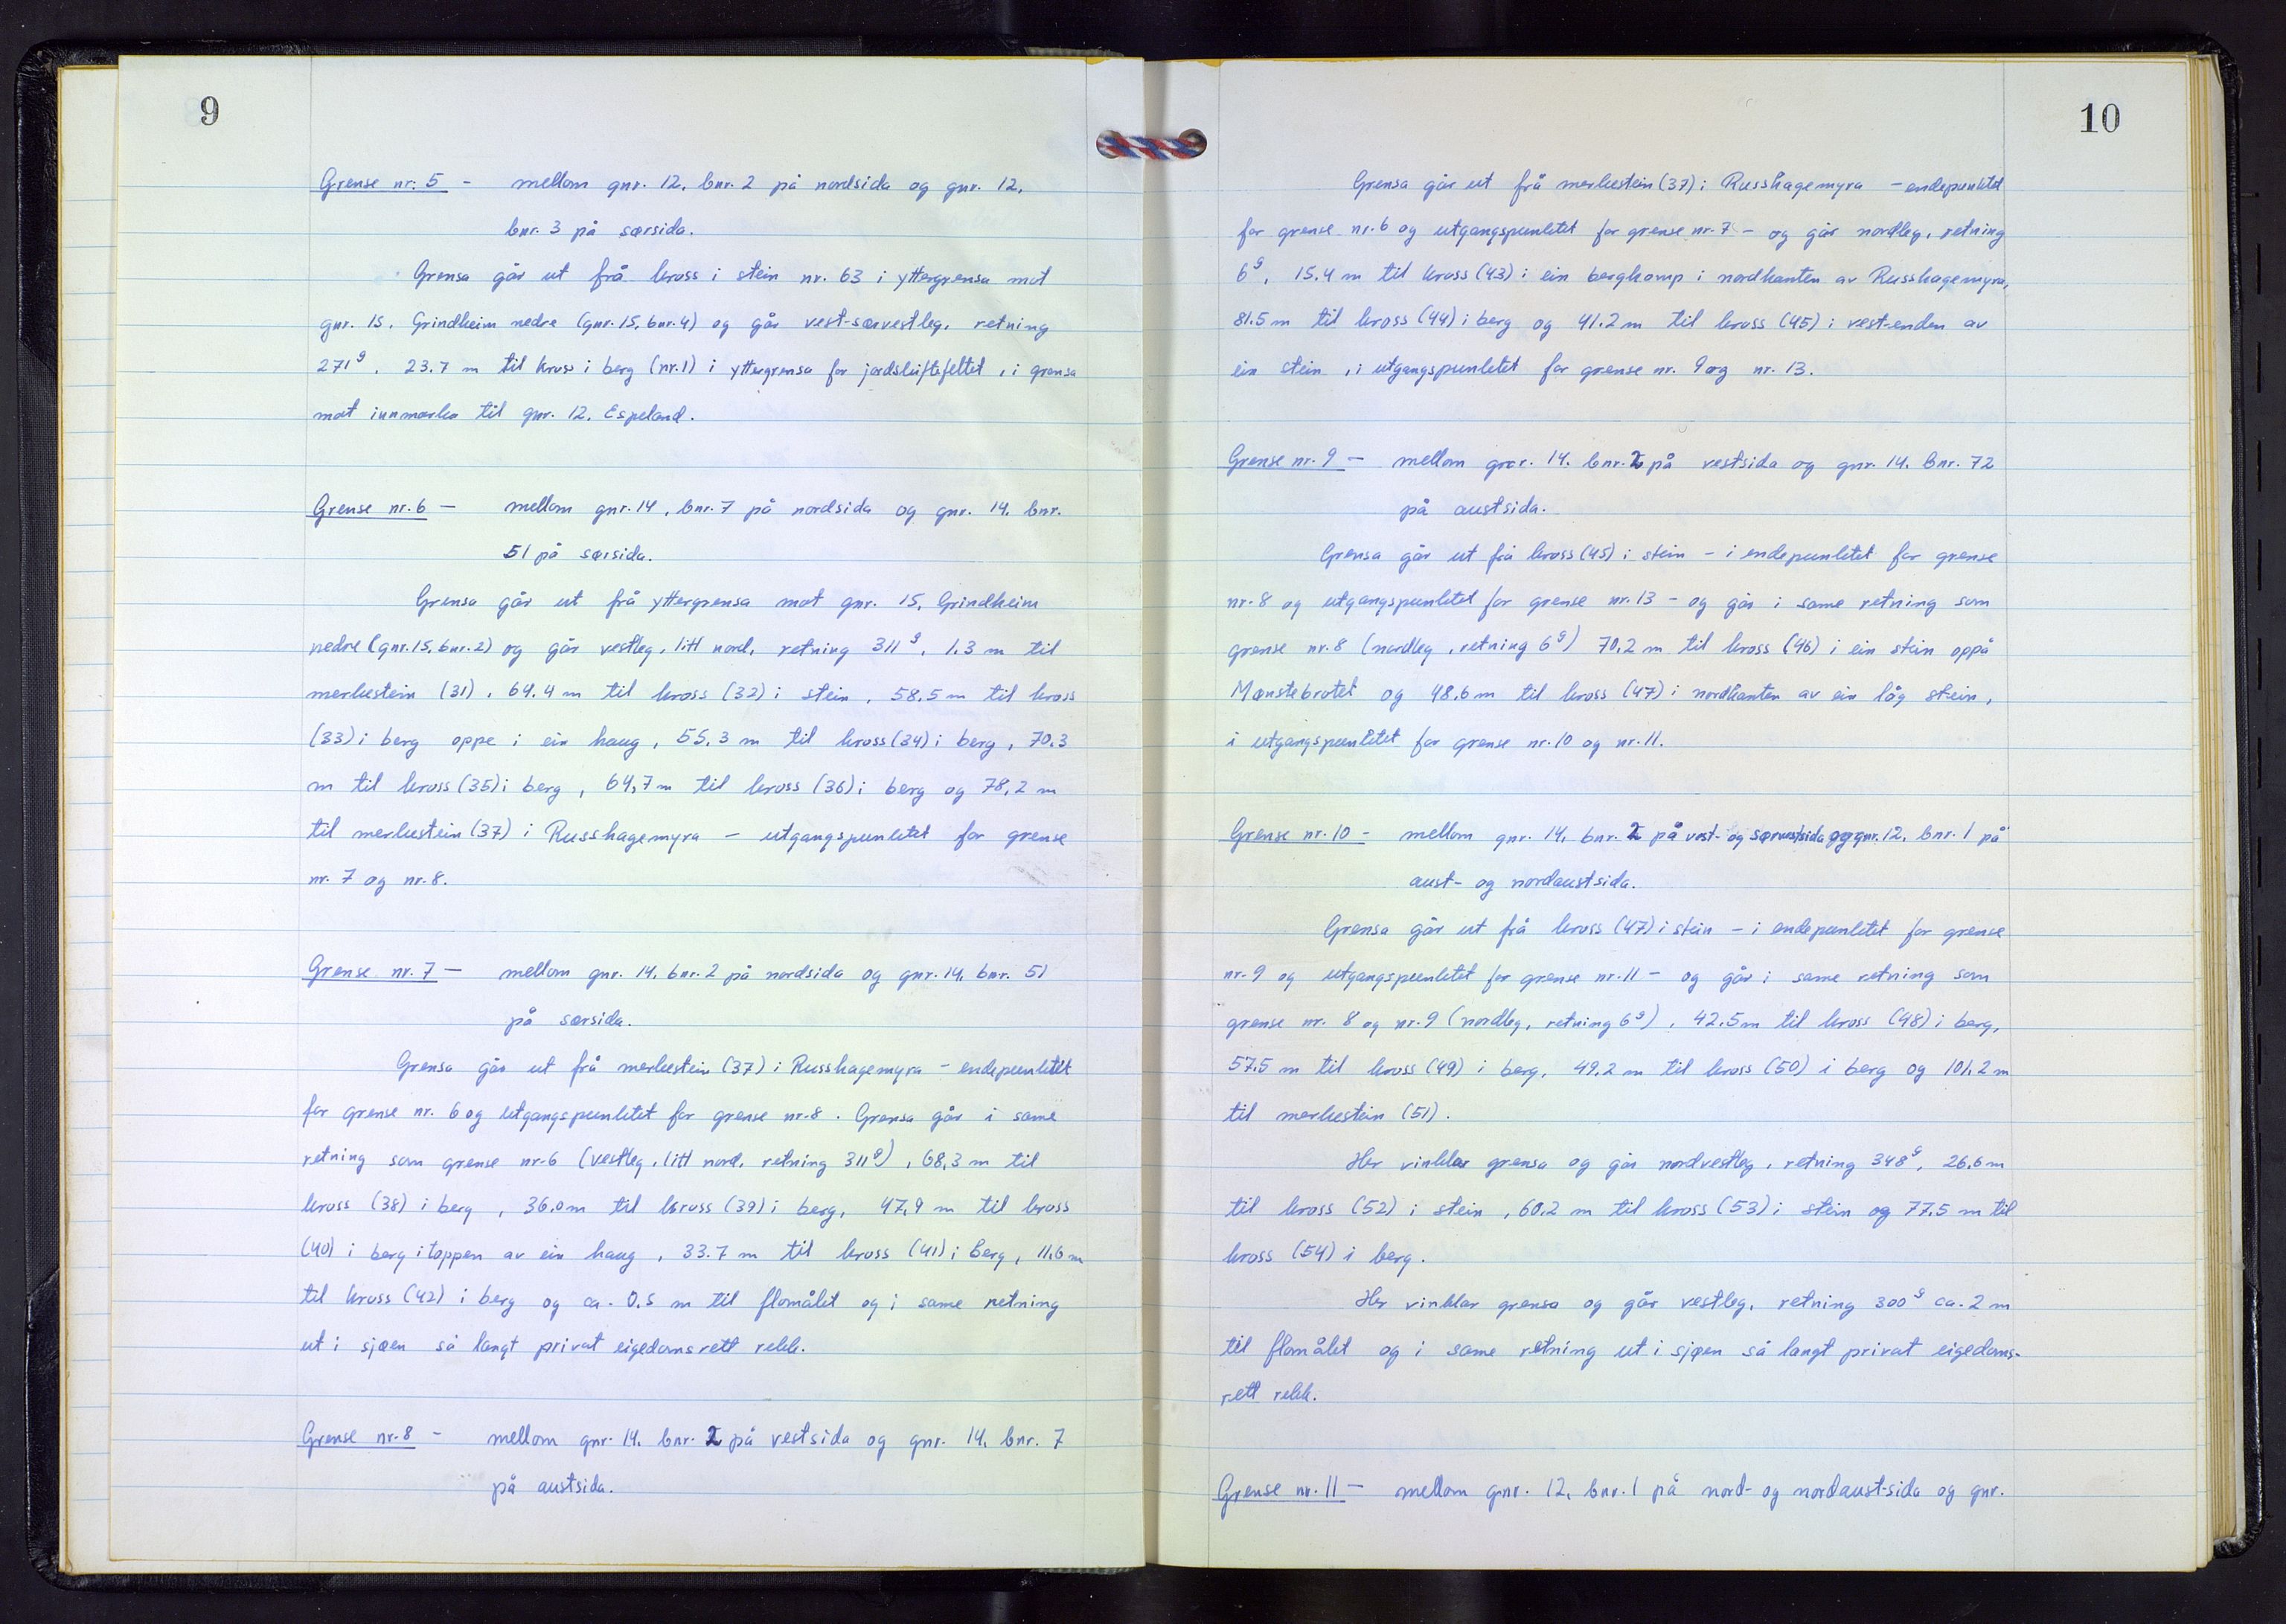 9
Grense nr. 5 - mellom gnr. 12, bnr. 2 på nordsida og gnr. 12,
bnr. 3 på sørsida.
Grensa går ut frå kross i stein nr. 63 i yttergrensa mot
gnr. 15, Grindheim nedre (gnr. 15, bnr. 4) og går vest-sørvestleg, retning
271g, 23.7 m til kross i berg (nr. 1) i yttergrensa for jordskiftefeltet, i grensa
mot innmarka til gnr. 12, Espeland.
Grense nr. 6 - mellom gnr. 14, bnr. 7 på nordsida og gnr. 14, bnr.
51 på sørsida.
Grensa går ut frå yttergrensa mot gnr. 15, Grindheim
nedre (gnr. 15, bnr. 2) og går vestleg, litt nord, retning 311g, 1.3 m til
merkestein (31), 64.4 m til kross (32) i stein, 58.5 m til kross
(33) i berg oppe i ein haug, 55.3 m til kross (34) i berg, 70.3
m til kross (35) i berg, 64,7 m til kross (36) i berg og 78,2 m
til merkestein (37) i Russhagemyra - utgangspunktet for grense
nr. 7 og nr. 8.
Grense nr. 7 - mellom gnr. 14, bnr. 2 på nordsida og gnr. 14, bnr. 51
på sørsida.
Grensa går ut frå merkestein (37) i Russhagemyra - endepunktet
for grense nr. 6 og utgangspunktet for grense nr. 8. Grensa går i same
retning som grense nr. 6 (vestleg, litt nord, retning 311g), 68,3 m til
kross (38) i berg, 36.0 m til kross (39) i berg, 47,9 m til kross
(40) i berg i toppen av ein haug, 33.7 m til kross (41) i berg, 11,6 m
til kross (42) i berg og ca. 0.5 m til flomålet og i same retning
ut i sjøen så langt privat eigedomsrett rekk.
Grense nr. 8 - mellom gnr. 14, bnr. 2 på vestsida og gnr. 14, bnr. 7
på austsida.
10
Grensa går ut frå merkestein (37) i Russhagemyra - endepunktet
for grense nr. 6 og utgangspunktet for grense nr. 7 - og går nordleg, retning
6g, 15.4 m til kross (43) i ein bergkamp i nordkanten av Russhagemyra,
81.5 m til kross (44) i berg og 41.2 m til kross (45) i vest-enden av
ein stein, i utgangspunktet for grense nr. 9 og nr. 13.
Grense nr. 9 - mellom gnr. 14, bnr. 2 på vestsida og gnr. 14, bnr. 72
på austsida.
Grensa går ut frå kross (45) i stein - i endepunktet for grense
nr. 8 og utgangspunktet for grense nr. 13 - og går i same retning som
grense nr. 8 (nordleg, retning 6g) 70,2 m til kross (46) i ein stein oppå
Mønstebrotet og 48,6 m til kross (47) i nordkanten av ein låg stein,
i utgangspunktet for grense nr. 10 og nr. 11.
Grense nr. 10 - mellom gnr. 14, bnr. 2 på vest- og sørvestsida og gnr. 12, bnr. 1 på
aust- og nordaustsida.
Grensa går ut frå kross (47) i stein - i endepunktet for grense
nr. 9 og utgangspunktet for grense nr. 11 - og går i same retning som
grense nr. 8 og nr. 9 (nordleg, retning 6g), 42.5 m til kross (48) i berg,
57.5 m til kross (49) i berg, 49,2 m til kross (50) i berg og 101.2 m
til merkestein (51).
Her vinklar grensa og går nordvestleg, retning 348g, 26.6 m
til kross (52) i stein, 60.2 m til kross (53) i stein og 77.5 m til
kross (54) i berg.
Her vinklar grensa og går vestleg, retning 300g ca. 2 m
til flomålet og i same retning ut i sjøen så langt privat eigedoms-
rett rekk.
Grense nr. 11 - mellom gnr. 12, bnr. 1 på nord- og nordaust-sida og gnr.